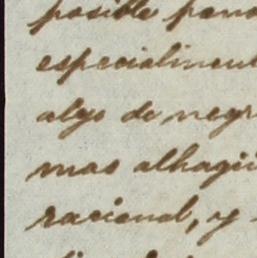 posible para
especialment
algo de negr
mas alhagü
racional, y